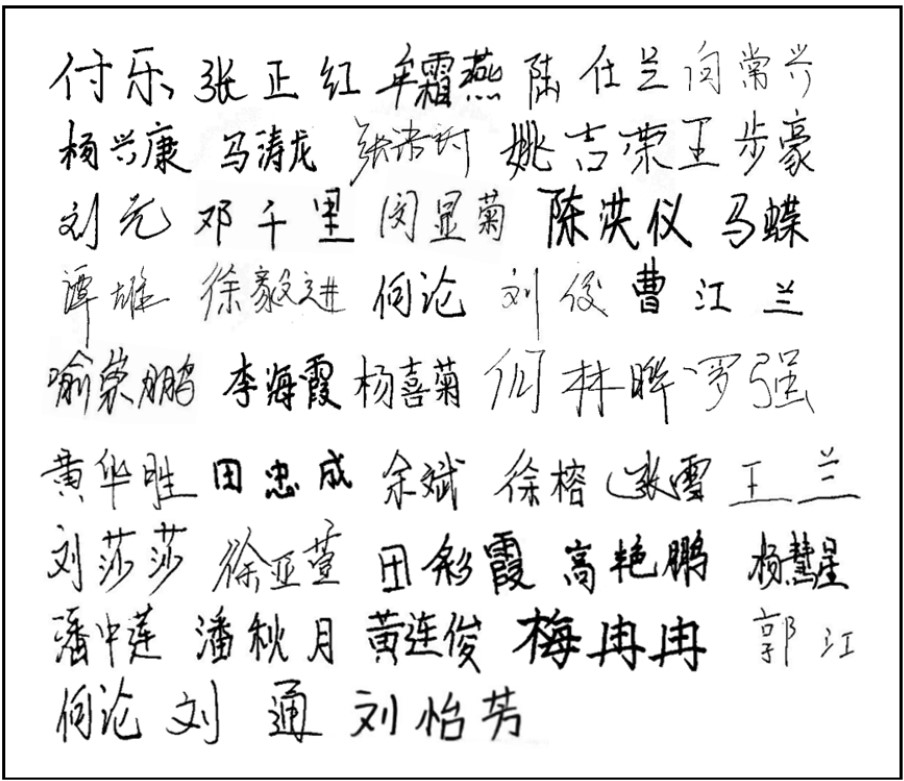 付乐 张正红 牟霜燕 陆仕兰 向常兴
杨兴康 马涛龙 姚吉荣 王步豪
刘尧 邓千里 闵显菊 陈洪仪 马蝶
谭雄 徐毅进 何论 刘俊 曹江兰
喻荣鹏 李海霞 杨喜菊 何林晔 罗强
黄华胜 田忠成 余斌 徐榕 张雪 王兰
刘莎莎 徐亚萱 田彩霞 高艳鹏 杨慧星
潘中莲 潘秋月 黄连俊 梅冉冉 郭江
何论 刘通 刘怡芳